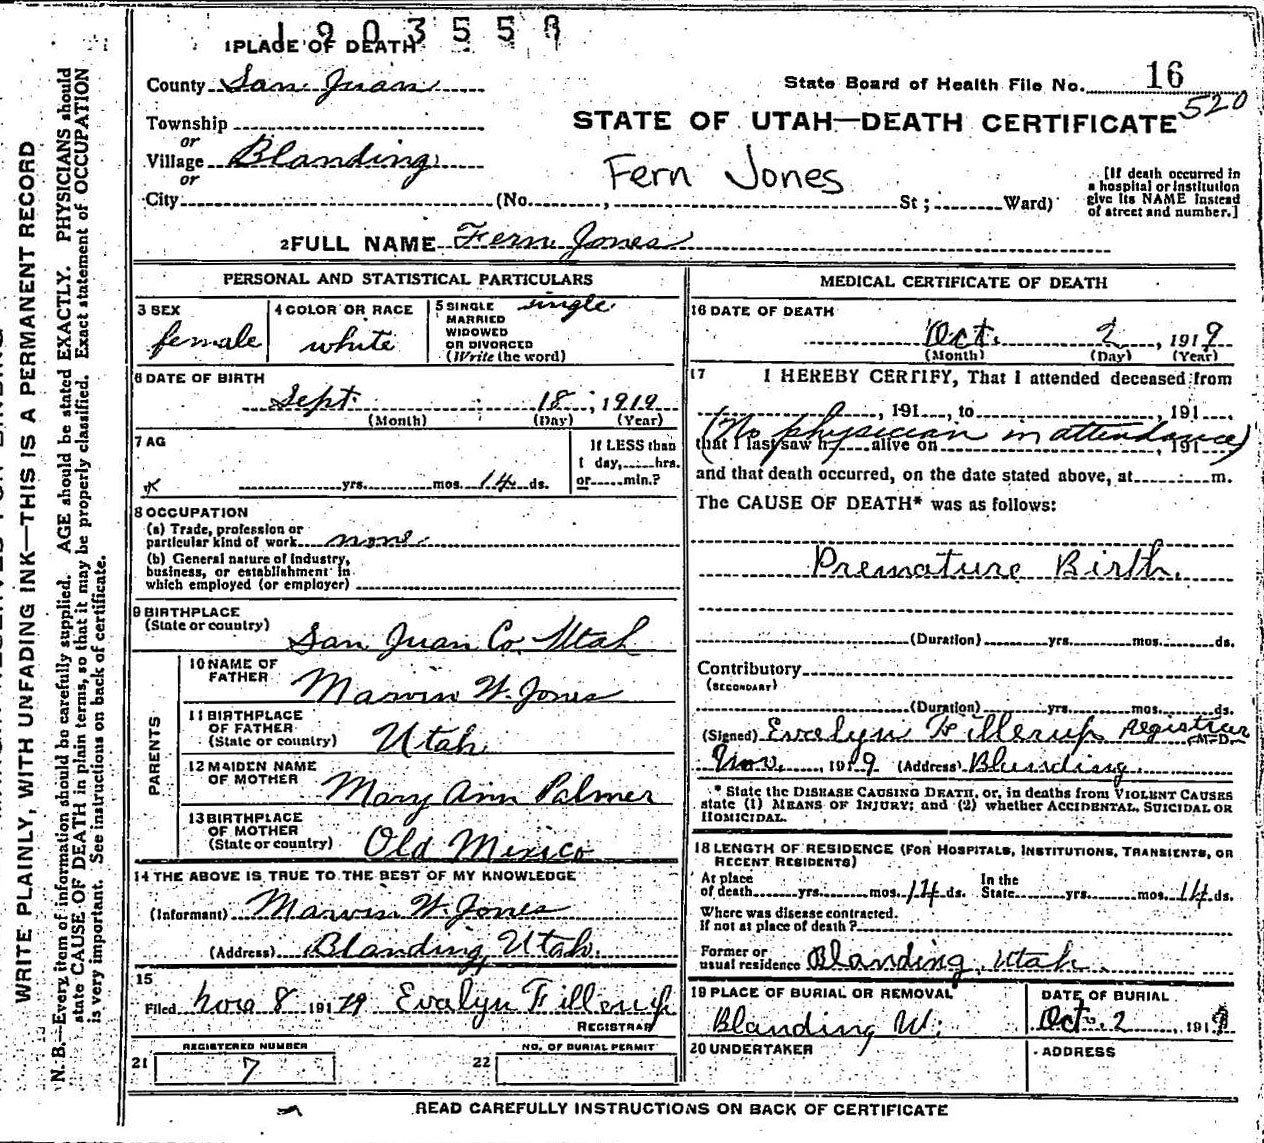 1903558
1 PLACE OF DEATH
County San Juan
State Board of Health File No. 16
520
Township
or
Village Blanding
or
City (No. , St ; Ward)
STATE OF UTAH—DEATH CERTIFICATE
Fern Jones
[If death occurred in
a hospital or institution
give its NAME instead
of street and number.]
2 FULL NAME Fern Jones
PERSONAL AND STATISTICAL PARTICULARS
3 SEX
female
4 COLOR OR RACE
white
5 SINGLE
MARRIED
WIDOWED
OR DIVORCED
(Write the word)
single
6 DATE OF BIRTH
Sept. 18, 1919
(Month) (Day) (Year)
7 AG
yrs. mos. 14 ds.
If LESS than
1 day, hrs.
or min.?
8 OCCUPATION
(a) Trade, profession or
particular kind of work none
(b) General nature of industry,
business, or establishment in
which employed (or employer)
9 BIRTHPLACE
(State or country)
San Juan Co. Utah
PARENTS
10 NAME OF
FATHER
Marvin W. Jones
11 BIRTHPLACE
OF FATHER
(State or country)
Utah
12 MAIDEN NAME
OF MOTHER
Mary Ann Palmer
13 BIRTHPLACE
OF MOTHER
(State or country)
Old Mexico
14 THE ABOVE IS TRUE TO THE BEST OF MY KNOWLEDGE
(Informant) Marvin W. Jones
(Address) Blanding, Utah.
15
Filed Nov 8 191 19 Evalyn Fillerup
REGISTRAR
21 REGISTERED NUMBER
7
22 NO. OF BURIAL PERMIT
MEDICAL CERTIFICATE OF DEATH
16 DATE OF DEATH
Oct. 2, 1919
(Month) (Day) (Year)
17 I HEREBY CERTIFY, That I attended deceased from
, 191 , to , 191 .
(No physician in attendance)
that I last saw h alive on , 191
and that death occurred, on the date stated above, at m.
The CAUSE OF DEATH* was as follows:
Premature Birth.
(Duration) yrs. mos. ds.
Contributory
(SECONDARY)
(Duration) yrs. mos. ds.
(Signed) Evalyn Fillerup Registrar
M.D.
Nov. , 1919 (Address) Blanding.
* State the DISEASE CAUSING DEATH, or, in deaths from VIOLENT CAUSES
state (1) MEANS OF INJURY; and (2) whether ACCIDENTAL, SUICIDAL OR
HOMICIDAL.
18 LENGTH OF RESIDENCE (FOR HOSPITALS, INSTITUTIONS, TRANSIENTS, OR
RECENT RESIDENTS)
At place
of death yrs. mos. 14 ds.
In the
State yrs. mos. 14 ds.
Where was disease contracted.
If not at place of death?
Former or
usual residence Blanding, Utah.
19 PLACE OF BURIAL OR REMOVAL
Blanding U.
DATE OF BURIAL
Oct. 2, 1919
20 UNDERTAKER
ADDRESS
READ CAREFULLY INSTRUCTIONS ON BACK OF CERTIFICATE
WRITE PLAINLY, WITH UNFADING INK—THIS IS A PERMANENT RECORD
N. B.—Every item of information should be carefully supplied. AGE should be stated EXACTLY. PHYSICIANS should
state CAUSE OF DEATH in plain terms, so that it may be properly classified. Exact statement of OCCUPATION
is very important. See instructions on back of certificate.